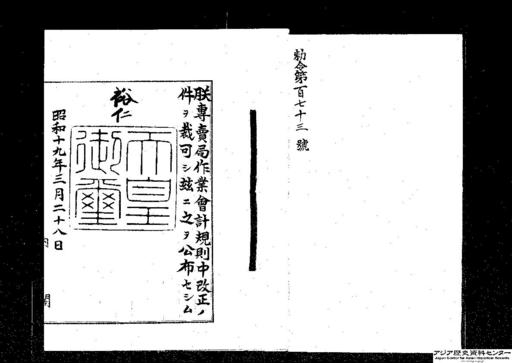 勅令第百七十三號
朕專賣局作業會計規則中改正ノ
件ヲ裁可シ玆ニ之ヲ公布セシム
裕仁
天皇
御璽
昭和十九年三月二十八日
内閣
アジア歴史資料センター
Japan Center for Asian Historical Records